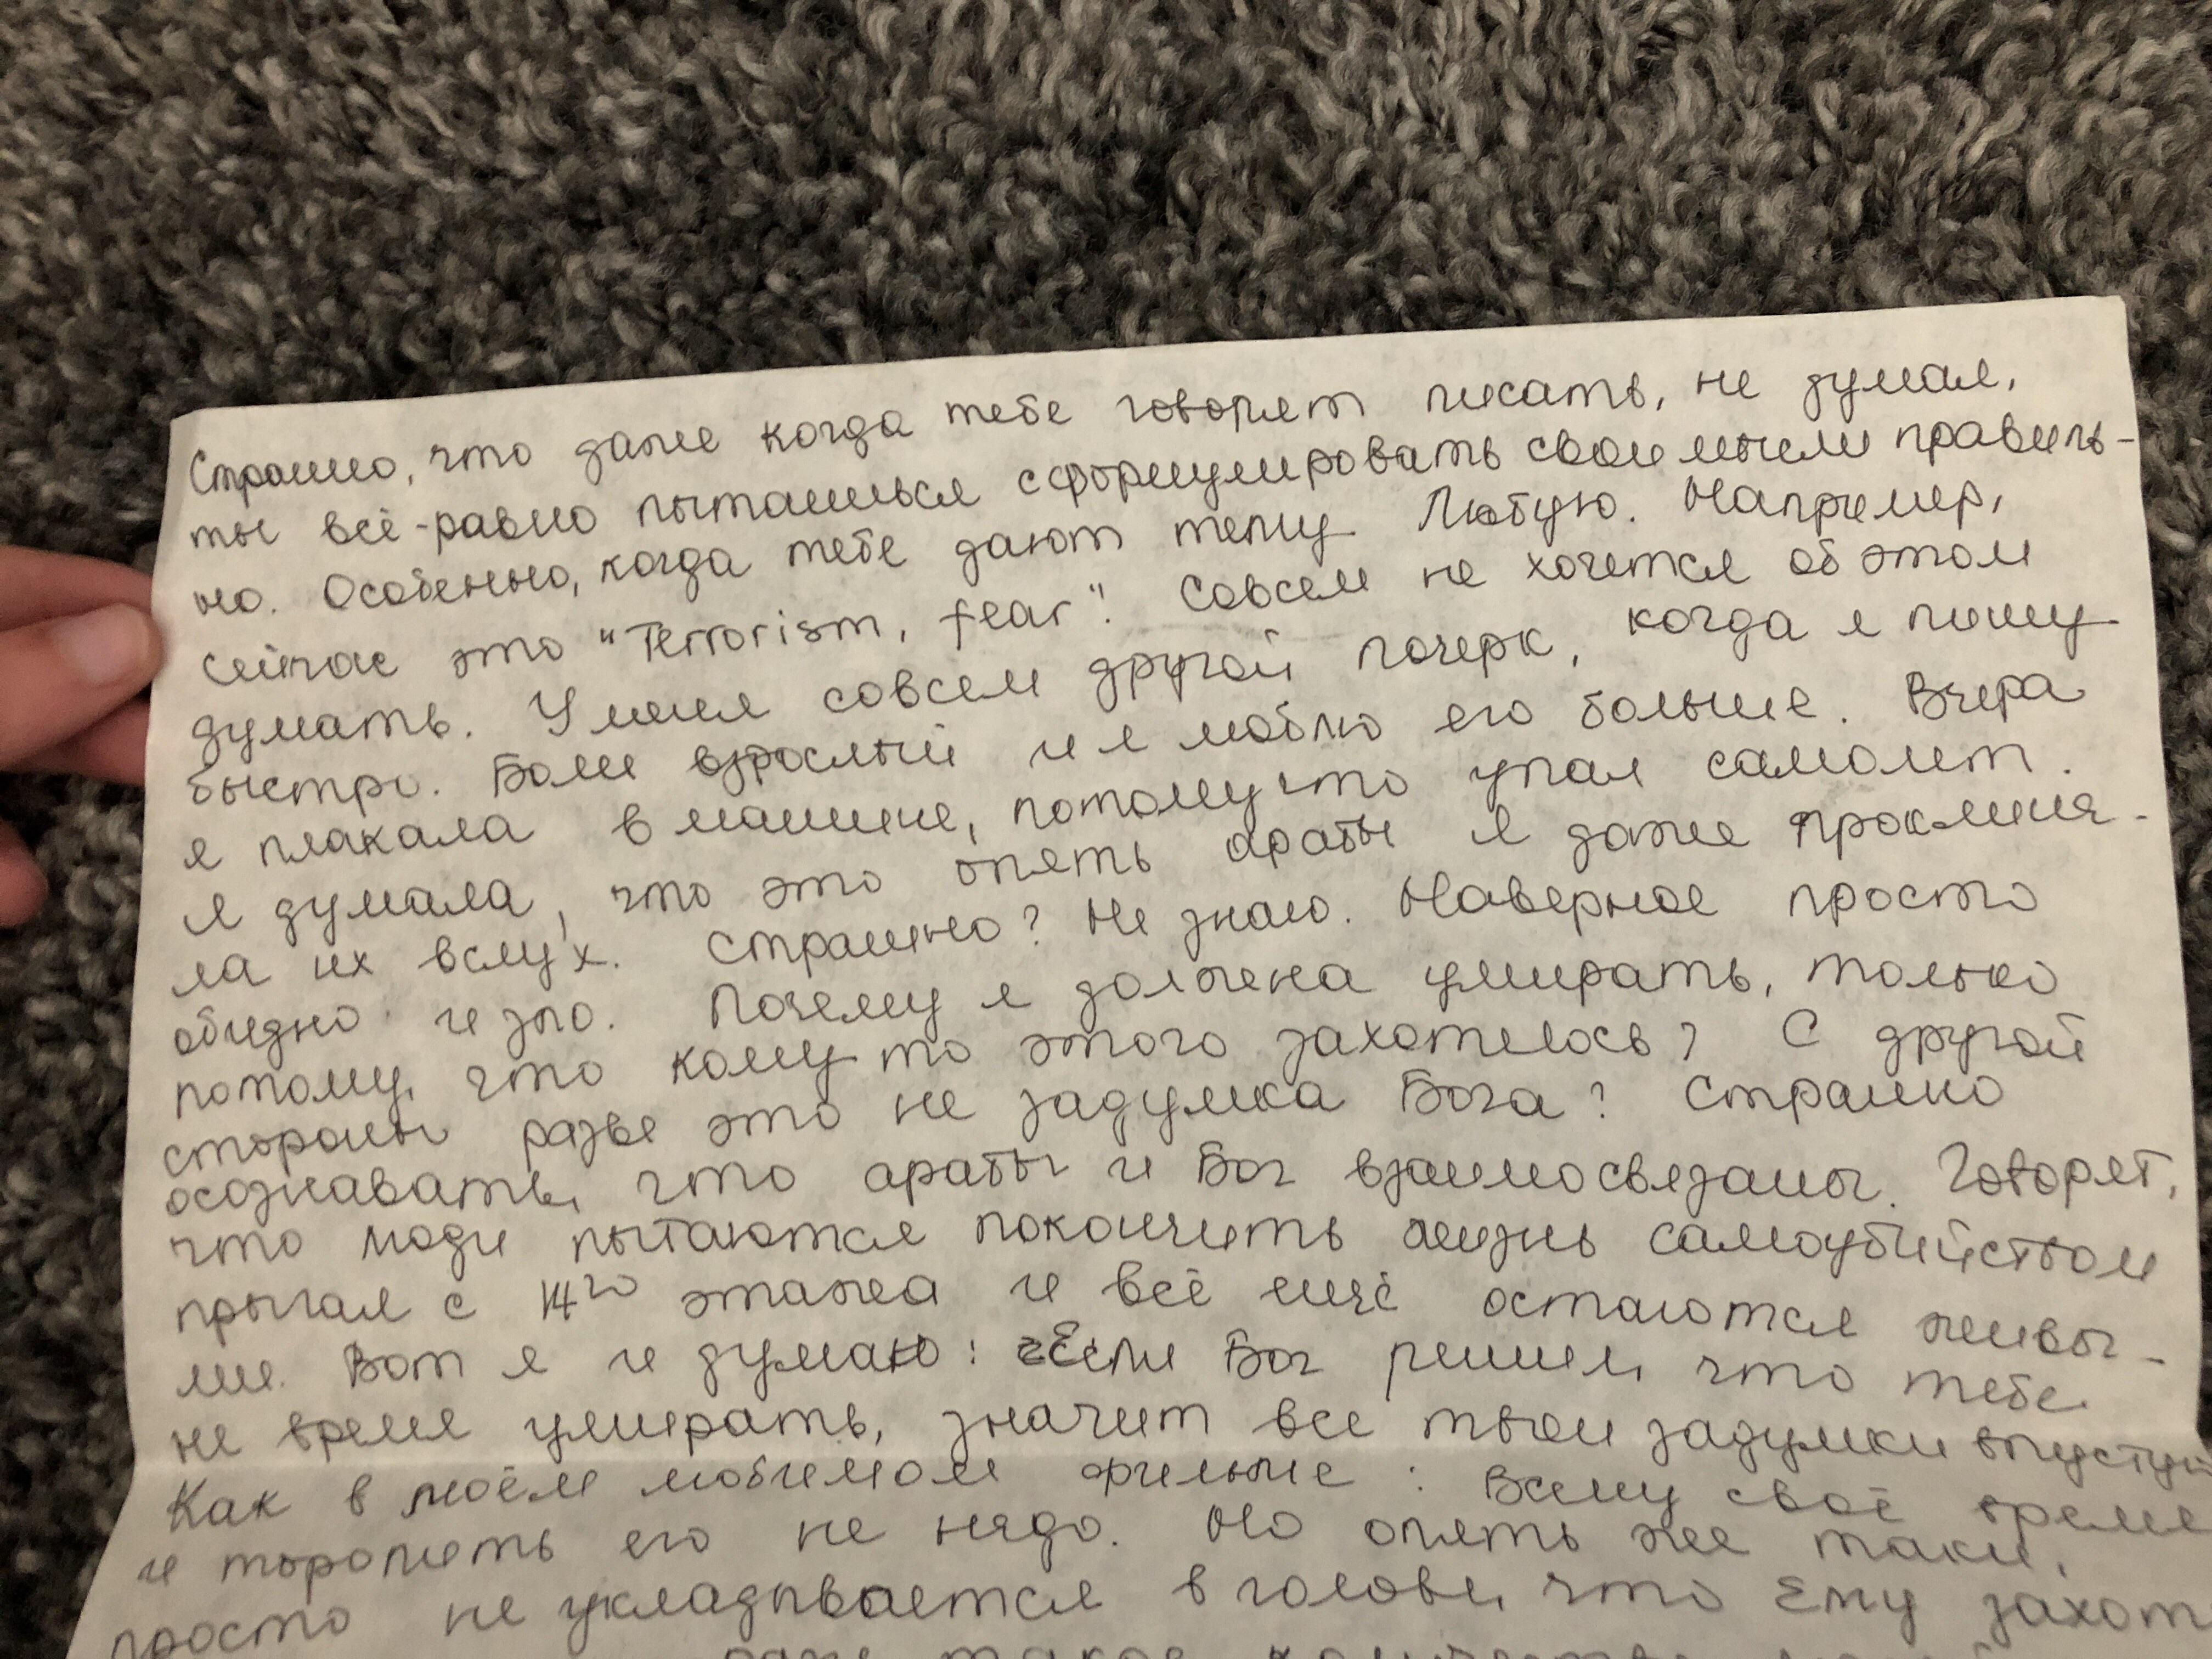 Страшно, что даже когда тебе говорят писать, не думая,
ты всё-равно пытаешься сформулировать свои мысли правиль-
но. Особенно, когда тебе дают тему. Любую. Например,
сейчас это "Terrorism, fear". Совсем не хочется об этом
думать. У меня совсем другой почерк, когда я пишу
быстро. Более взрослый и я люблю его больше. Вчера
я плакала в машине, потому что упал самолет.
Я думала, что это опять арабы я даже проклина-
ла их вслух. Страшно? Не знаю. Наверное просто
обидно и зло. Почему я должна умирать, только
потому, что кому то этого захотелось? С другой
стороны разве это не задумка Бога? Страшно
осознавать, что арабы и Бог взаимосвязаны. Говорят,
что люди пытаются покончить жизнь самоубийством
прыгая с 14го этажа и всё ещё остаются живы-
ми. Вот я и думаю: Если Бог решил, что тебе
не время умирать, значит все твои задумки впустую
Как в моём любимом фильме: Всему своё время
и торопить его не надо. Но опять же таки,
просто не укладывается в голове, что Ему захот
такое